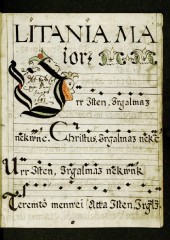 LITANIA MA
ior:
Ur Isten, Irgalmaz
nekwnc. Christus, Irgalmaz nekc
Urr Isten, Irgalmaz nekwnk
Teremtö mennei Atta Isten, Irgal: